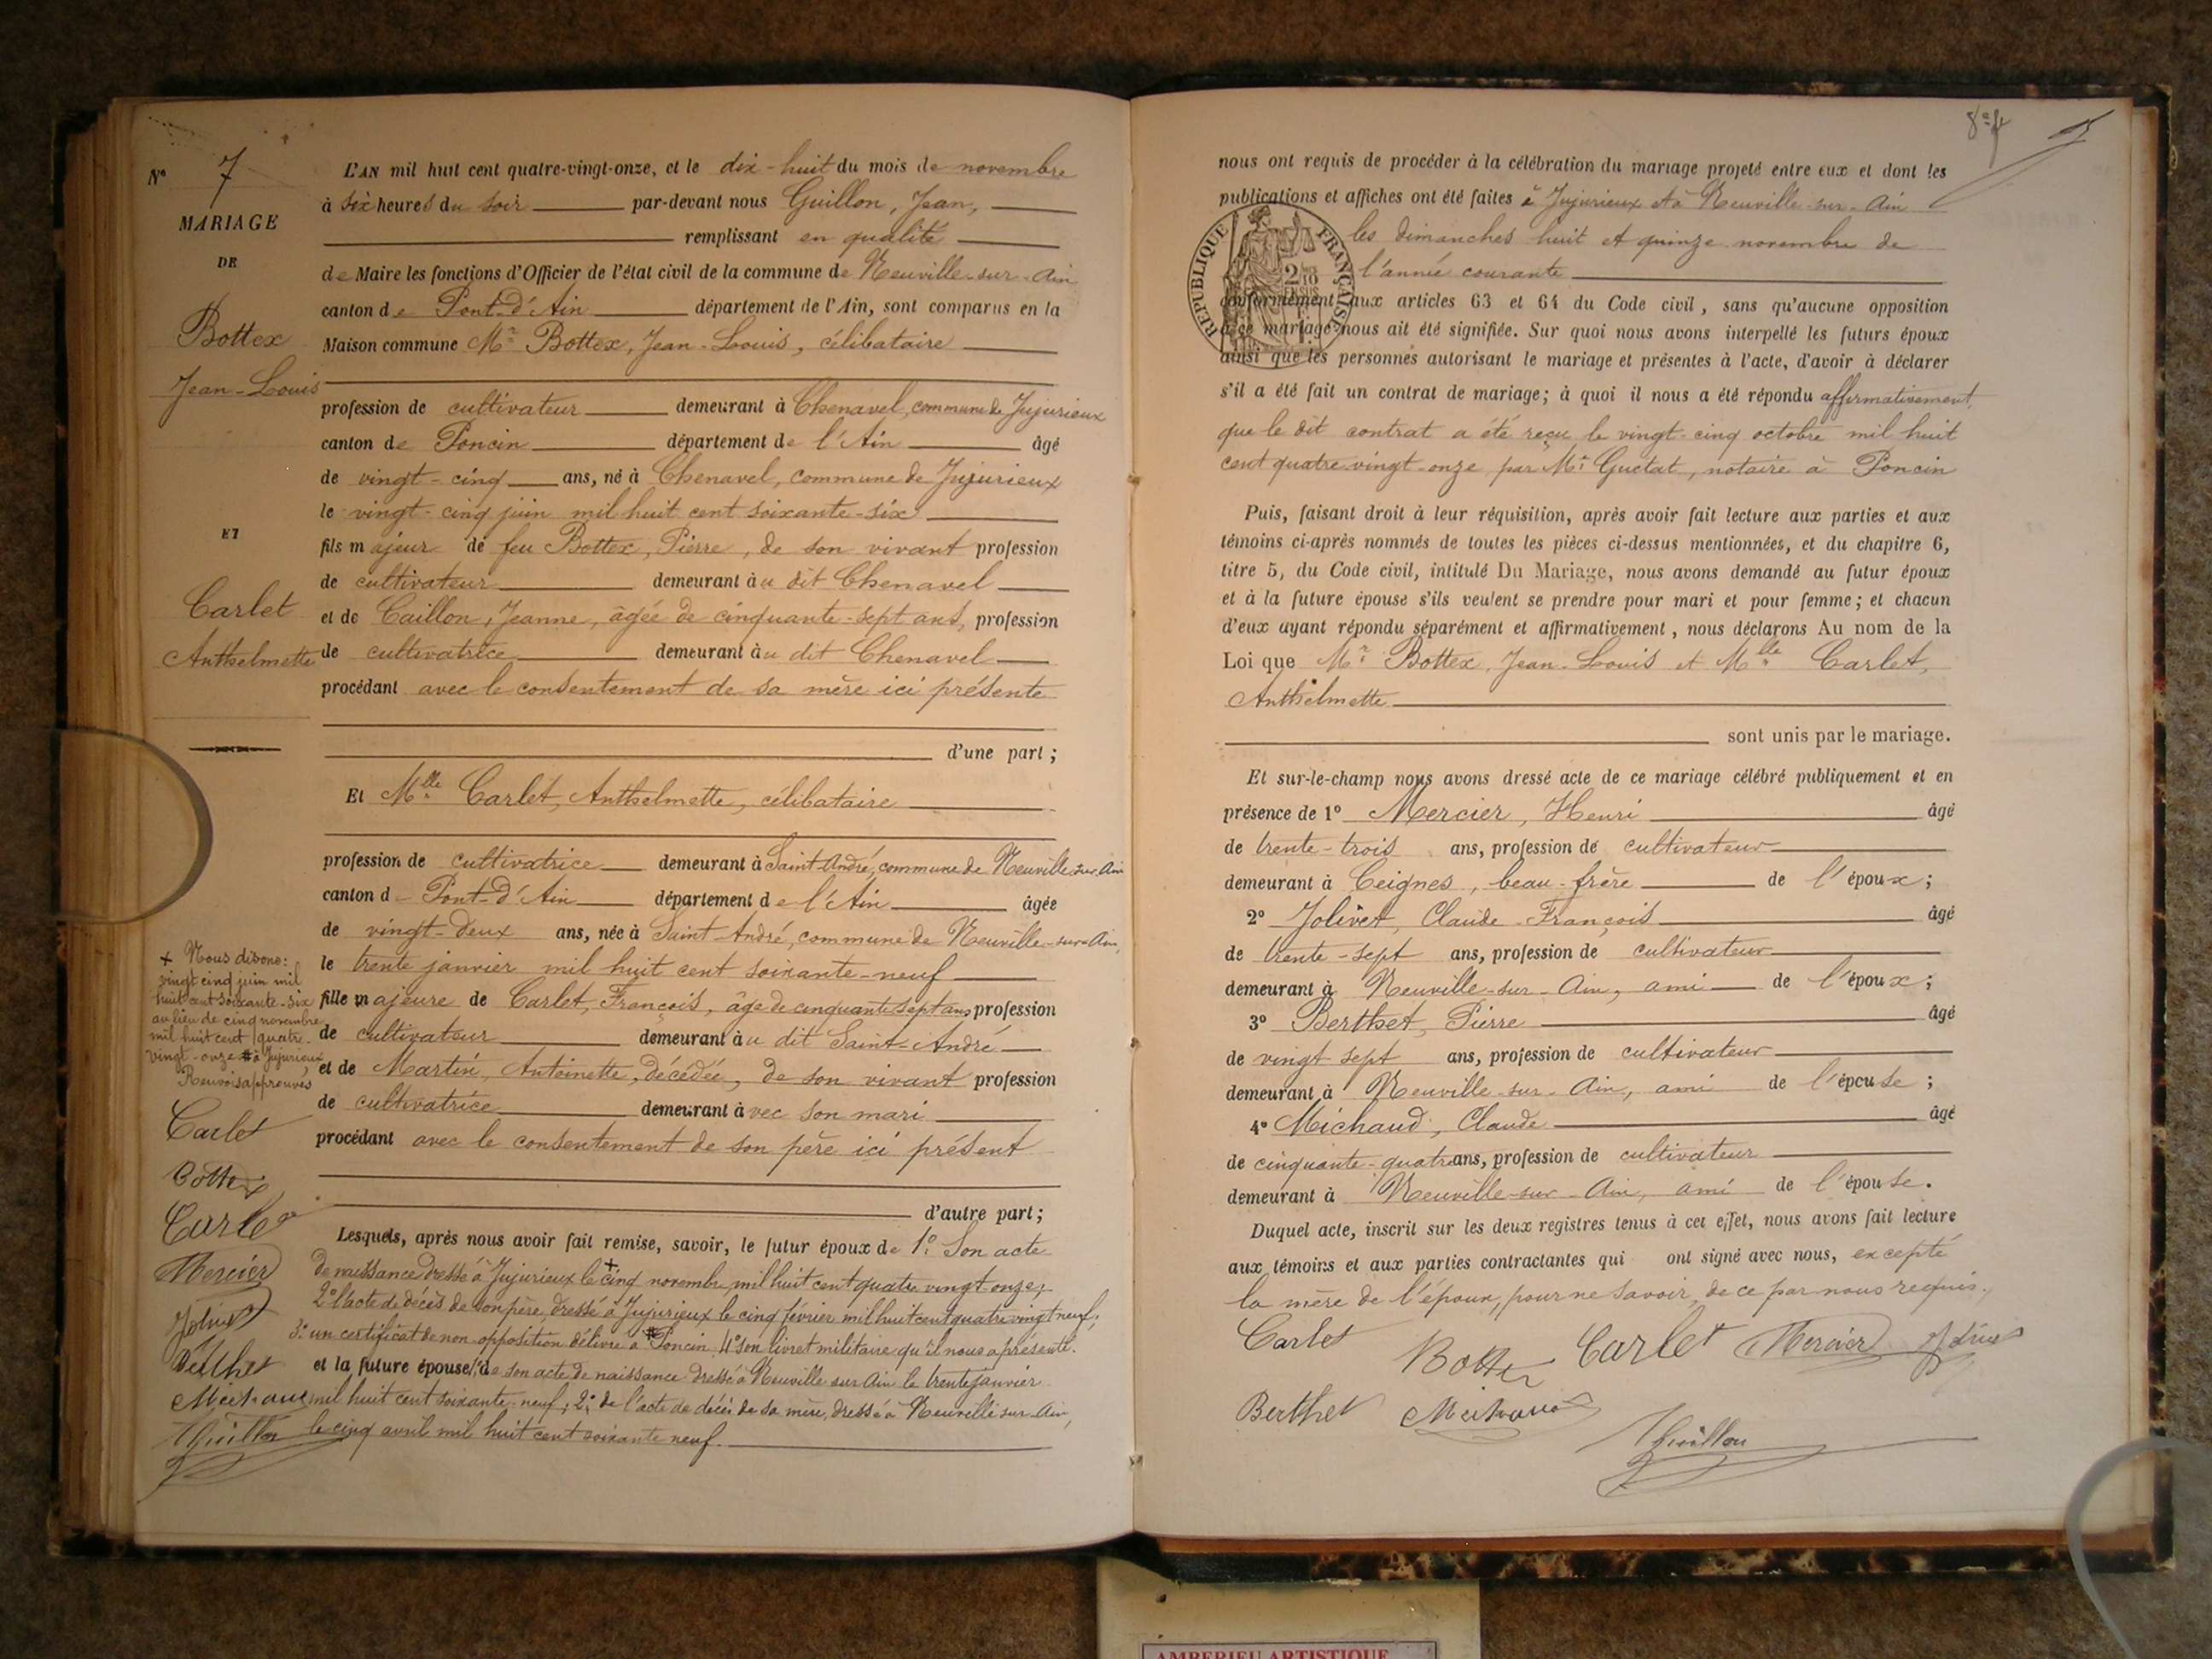 N° 7
MARIAGE
DE
Bottex
Jean-Louis
ET
Carlet
Anthelmette
L'AN mil huit cent quatre-vingt-onze, et le dix-huit du mois de novembre
à six heures du soir par-devant nous Guillon, Jean,
remplissant en qualité
de Maire les fonctions d'Officier de l'état civil de la commune de Neuville-sur-Ain
canton de Pont-d'Ain département de l'Ain, sont comparus en la
Maison commune Mr Bottex, Jean-Louis, célibataire
profession de cultivateur demeurant à Chenavel, commune de Jujurieux
canton de Poncin département de l'Ain âgé
de vingt-cinq ans, né à Chenavel, commune de Jujurieux
le vingt-cinq juin mil huit cent soixante-six
fils majeur de feu Bottex, Pierre, de son vivant profession
de cultivateur demeurant au dit Chenavel
et de Caillon, Jeanne, âgée de cinquante-sept ans, profession
de cultivatrice demeurant au dit Chenavel
procédant avec le consentement de sa mère ici présente
d'une part ;
Et Mlle Carlet, Anthelmette, célibataire
profession de cultivatrice demeurant à Saint-André, commune de Neuville-sur-Ain
canton d Pont-d'Ain département de l'Ain âgée
de vingt-deux ans, née à Saint-André, commune de Neuville-sur-Ain,
le trente janvier mil huit cent soixante-neuf
fille majeure de Carlet, François, âgé de cinquante sept ans profession
de cultivateur demeurant au dit Saint-André
et de Martin, Antoinette, décédée, de son vivant profession
de cultivatrice demeurant avec son mari
procédant avec le consentement de son père ici présent
d'autre part ;
Lesquels, après nous avoir fait remise, savoir, le futur époux de 1° Son acte
de naissance dressé à Jujurieux le + cinq novembre mil huit cent quatre vingt-onze ;
2° l'acte de décès de son père, dressé à Jujurieux le cinq février mil huit cent quatre vingt neuf ;
3° un certificat de non-opposition délivré à # Poncin 4° son livret militaire qu'il nous a présenté.
et la future épouse 1° de son acte de naissance dressé à Neuville-sur-Ain le trente janvier
mil huit cent soixante-neuf ; 2° de l'acte de décès de sa mère, dressé à Neuville-sur-Ain,
le cinq avril mil huit cent soixante neuf.
+ Nous disons :
vingt cinq juin mil
huit cent soixante-six
au lieu de cinq novembre
mil huit cent quatre-
vingt-onze # à Jujurieux
Renvois approuvés
Carlet
Bottex
Carlet
Mercier
Jolivet
Berthet
Michaud
Guillon
nous ont requis de procéder à la célébration du mariage projeté entre eux et dont les
publications et affiches ont été faites à Jujurieux et à Neuville-sur-Ain
les dimanches huit et quinze novembre de
l'année courante
RÉPUBLIQUE FRANÇAISE
conformément aux articles 63 et 64 du Code civil, sans qu'aucune opposition
à ce mariage nous ait été signifiée. Sur quoi nous avons interpellé les futurs époux
ainsi que les personnes autorisant le mariage et présentes à l'acte, d'avoir à déclarer
s'il a été fait un contrat de mariage ; à quoi il nous a été répondu affirmativement,
que le dit contrat a été reçu le vingt-cinq octobre mil huit
cent quatre vingt-onze par Mr Guetat, notaire à Poncin
Puis, faisant droit à leur réquisition, après avoir fait lecture aux parties et aux
témoins ci-après nommés de toutes les pièces ci-dessus mentionnées, et du chapitre 6,
titre 5, du Code civil, intitulé Du Mariage, nous avons demandé au futur époux
et à la future épouse s'ils veulent se prendre pour mari et pour femme ; et chacun
d'eux ayant répondu séparément et affirmativement, nous déclarons Au nom de la
Loi que Mr Bottex, Jean-Louis et Mlle Carlet,
Anthelmette
sont unis par le mariage.
Et sur-le-champ nous avons dressé acte de ce mariage célébré publiquement et en
présence de 1° Mercier, Henri âgé
de trente-trois ans, profession de cultivateur
demeurant à Ceignes, beau-frère de l'époux ;
2° Jolivet, Claude-François âgé
de trente-sept ans, profession de cultivateur
demeurant à Neuville-sur-Ain, ami de l'époux ;
3° Berthet, Pierre âgé
de vingt sept ans, profession de cultivateur
demeurant à Neuville-sur-Ain, ami de l'épouse ;
4° Michaud, Claude âgé
de cinquante-quatre ans, profession de cultivateur
demeurant à Neuville-sur-Ain, ami de l'épouse.
Duquel acte, inscrit sur les deux registres tenus à cet effet, nous avons fait lecture
aux témoins et aux parties contractantes qui ont signé avec nous, excepté
la mère de l'époux, pour ne savoir, de ce par nous requis.
Carlet Bottex Carlet Mercier Jolivet
Berthet Michaud
Guillon
AMBERIEU ARTISTIQUE